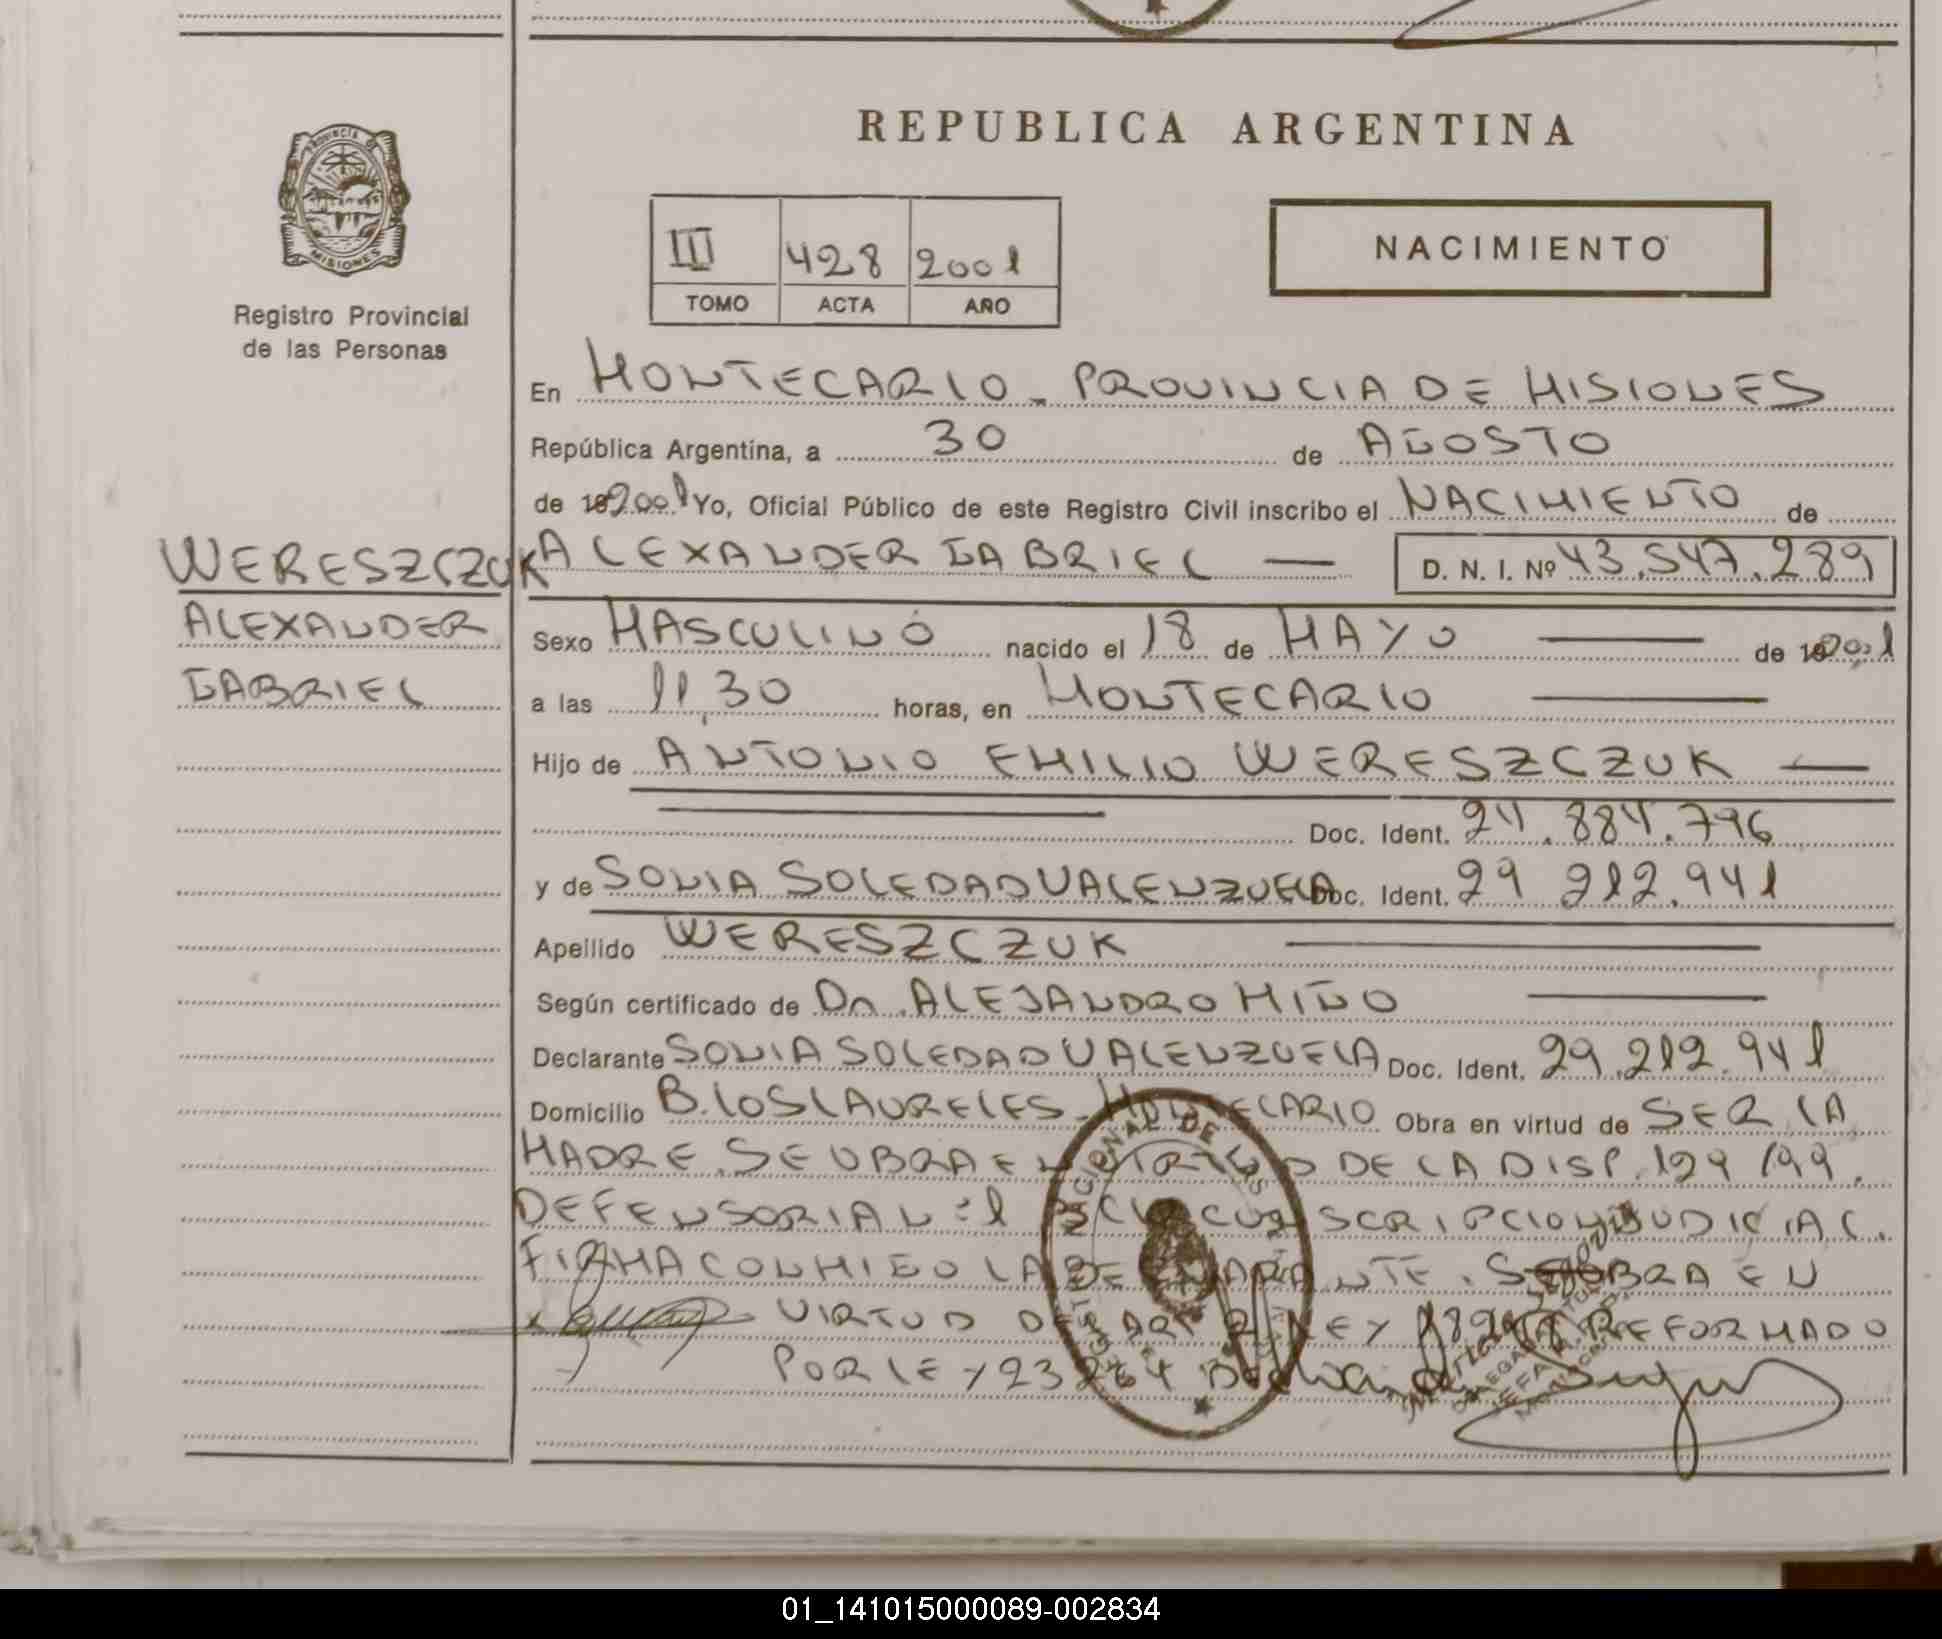 REPUBLICA ARGENTINA
PROVINCIA DE MISIONES
Registro Provincial
de las Personas
III 428 2001
TOMO ACTA AÑO
NACIMIENTO
En MONTECARLO - PROVINCIA DE MISIONES
República Argentina, a 30 de AGOSTO
de 19 2001 Yo, Oficial Público de este Registro Civil inscribo el NACIMIENTO de
WERESZCZUK
ALEXANDER
GABRIEL
ALEXANDER GABRIEL — D. N. I. Nº 43.547.289
Sexo MASCULINO nacido el 18 de MAYO — de 19 2001
a las 11,30 horas, en MONTECARLO —
Hijo de ANTONIO EMILIO WERESZCZUK —
Doc. Ident. 24.884.796
y de SONIA SOLEDAD VALENZUELA Doc. Ident. 29 212.941
Apellido WERESZCZUK —
Según certificado de Dr. ALEJANDRO MIÑO —
Declarante SONIA SOLEDAD VALENZUELA Doc. Ident. 29.212.941
Domicilio B. LOS LAURELES - MONTECARLO Obra en virtud de SER LA
MADRE. SE OBRA EN VIRTUD DE LA DISP. 129/99.
DEFENSORIA Nº1 CIRCUNSCRIPCION JUDICIAL.
FIRMA CONMIGO LA DECLARANTE. SE OBRA EN
VIRTUD DE ART 2 LEY 18248 REFORMADO
POR LEY 23264
01_141015000089-002834